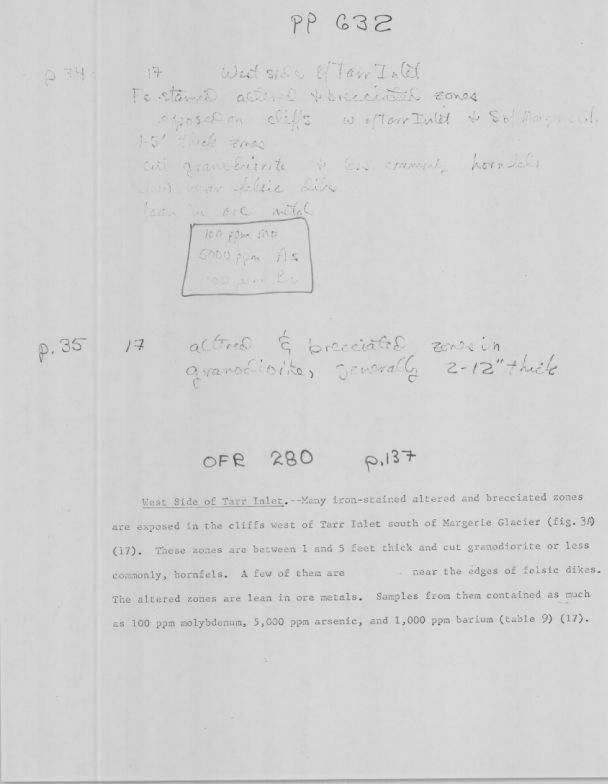 PP 632
p 74 17 West side of Tarr Inlet
Fe-stained altered & brecciated zones
exposed on cliffs w of Tarr Inlet & S of Margerie Gl.
1-5' thick zones
cut granodiorite & less commonly hornfels
near felsic dike
lean in ore metal
100 ppm Mo
5000 ppm As
ppm Ba
p.35 17 altred & brecciated zones in
granodiorite, generally 2-12" thick
OFR 280 p.137
West Side of Tarr Inlet.--Many iron-stained altered and brecciated zones
are exposed in the cliffs west of Tarr Inlet south of Margerie Glacier (fig. 3A)
(17). These zones are between 1 and 5 feet thick and cut granodiorite or less
commonly, hornfels. A few of them are near the edges of felsic dikes.
The altered zones are lean in ore metals. Samples from them contained as much
as 100 ppm molybdenum, 5,000 ppm arsenic, and 1,000 ppm barium (table 9) (17).